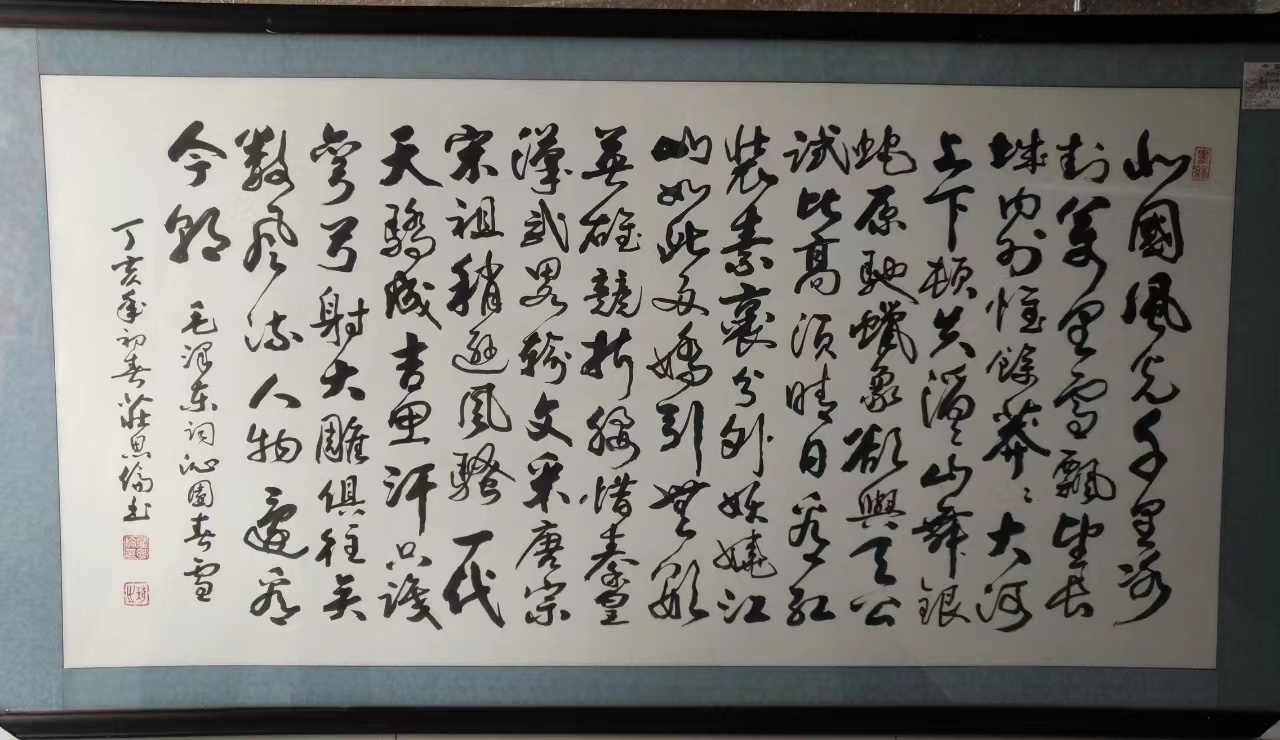 北國風光千里冰
封萬里雪飄望長
城内外惟餘莽〻大河
上下頓失滔〻山舞銀
蛇原馳蠟象欲與天公
試比高須晴日看紅
裝素裹分外妖嬈江
山如此多嬌引無數
英雄競折腰惜秦皇
漢武略輸文采唐宗
宋祖稍遜風騷一代
天驕成吉思汗只識
彎弓射大雕俱往矣
數風流人物還看
今朝
毛澤東詞沁園春雪
丁亥年初春莊思書